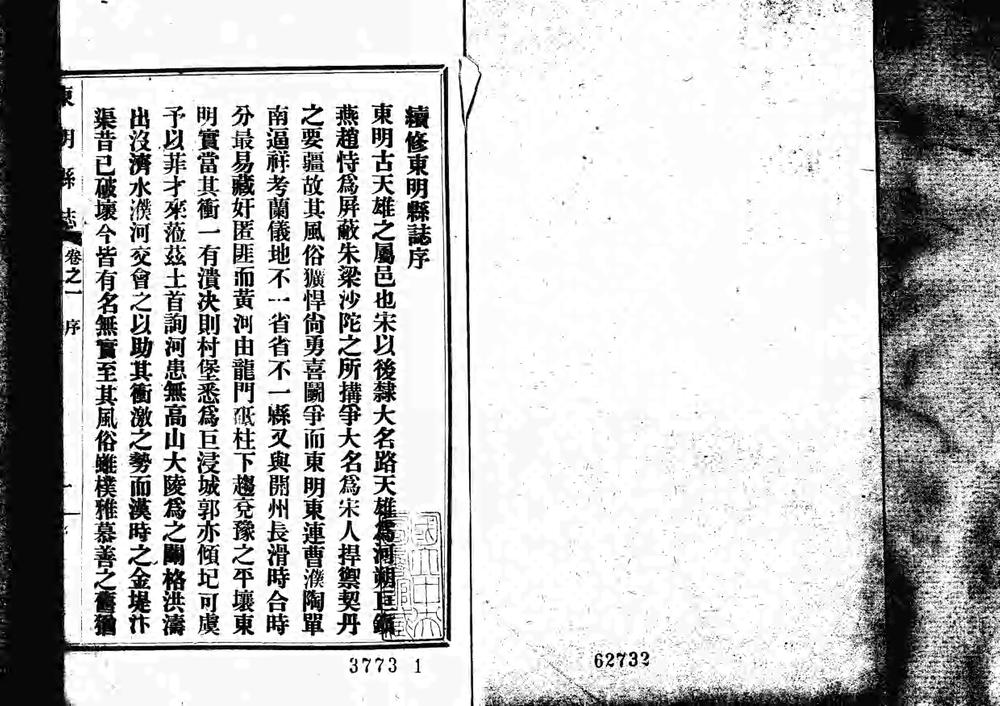 續修東明縣誌序
東明古天雄之屬邑也宋以後隸大名路天雄爲河朔巨鎮
燕趙恃爲屏蔽朱梁沙陀之所搆爭大名爲宋人捍禦契丹
之要疆故其風俗獷悍尙勇喜鬭爭而東明東連曹濮陶單
南逼祥考蘭儀地不一省省不一縣又與開州長滑時合時
分最易藏奸匿匪而黃河由龍門砥柱下趨兗豫之平壤東
明實當其衝一有潰决則村堡悉爲巨浸城郭亦傾圮可虞
予以菲才來蒞茲土首詢河患無高山大陵爲之關格洪濤
出沒濟水濮河交會之以助其衝激之勢而漢時之金堤汴
渠昔已破壞今皆有名無實至其風俗雖樸雅慕善之舊猶
東明縣志 卷之一 序 一
3773 1
62732